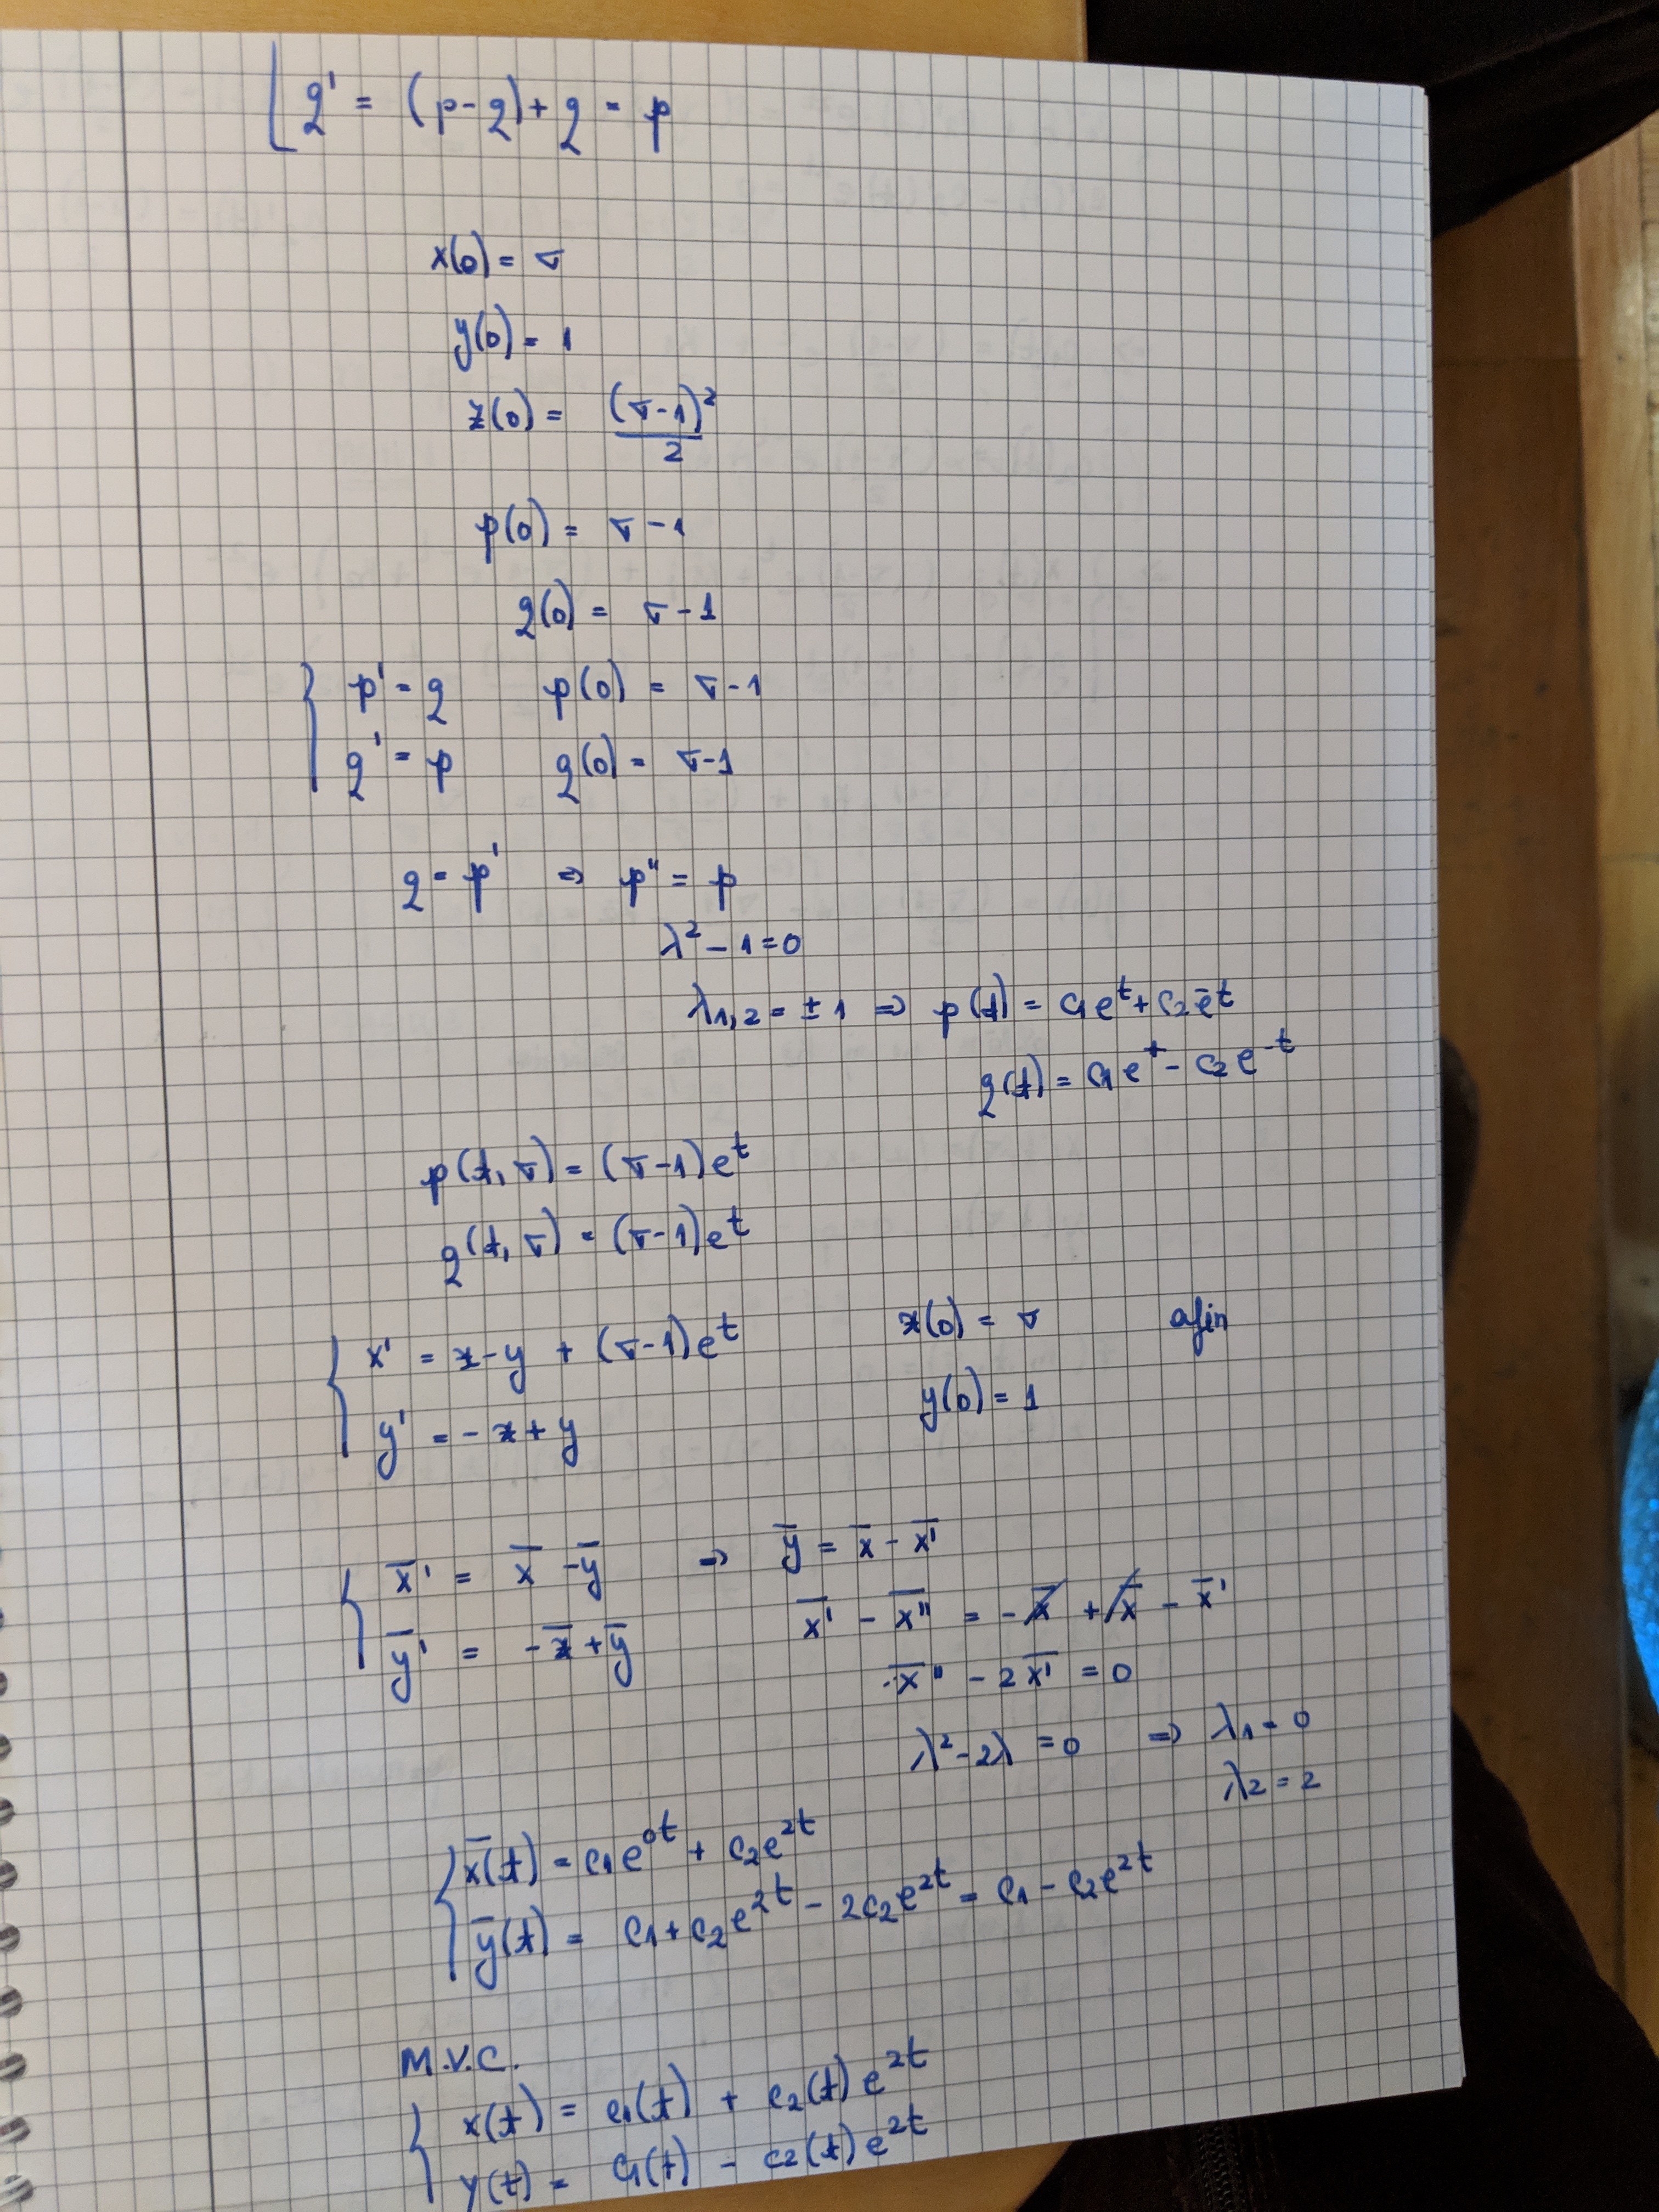 q' = (p-q)+q = p
x(0) = σ
y(0) = 1
z(0) = (σ-1)²/2
p(0) = σ-1
q(0) = σ-1
p' = q p(0) = σ-1
q' = p q(0) = σ-1
q = p' ⇒ p'' = p
λ² - 1 = 0
λ1,2 = ±1 ⇒ p(t) = c1e^t + c2e^-t
q(t) = c1e^t - c2e^-t
p(t,σ) = (σ-1)e^t
q(t,σ) = (σ-1)e^t
x' = x-y + (σ-1)e^t x(0) = σ afin
y' = -x+y y(0) = 1
x̄' = x̄ - ȳ ⇒ ȳ = x̄ - x̄'
ȳ' = -x̄ + ȳ x̄' - x̄'' = -x̄ + x̄ - x̄'
x̄'' - 2x̄' = 0
λ² - 2λ = 0 ⇒ λ1 = 0
λ2 = 2
x̄(t) = c1e^0t + c2e^2t
ȳ(t) = c1 + c2e^2t - 2c2e^2t = c1 - c2e^2t
M.V.C.
x(t) = c1(t) + c2(t)e^2t
y(t) = c1(t) - c2(t)e^2t